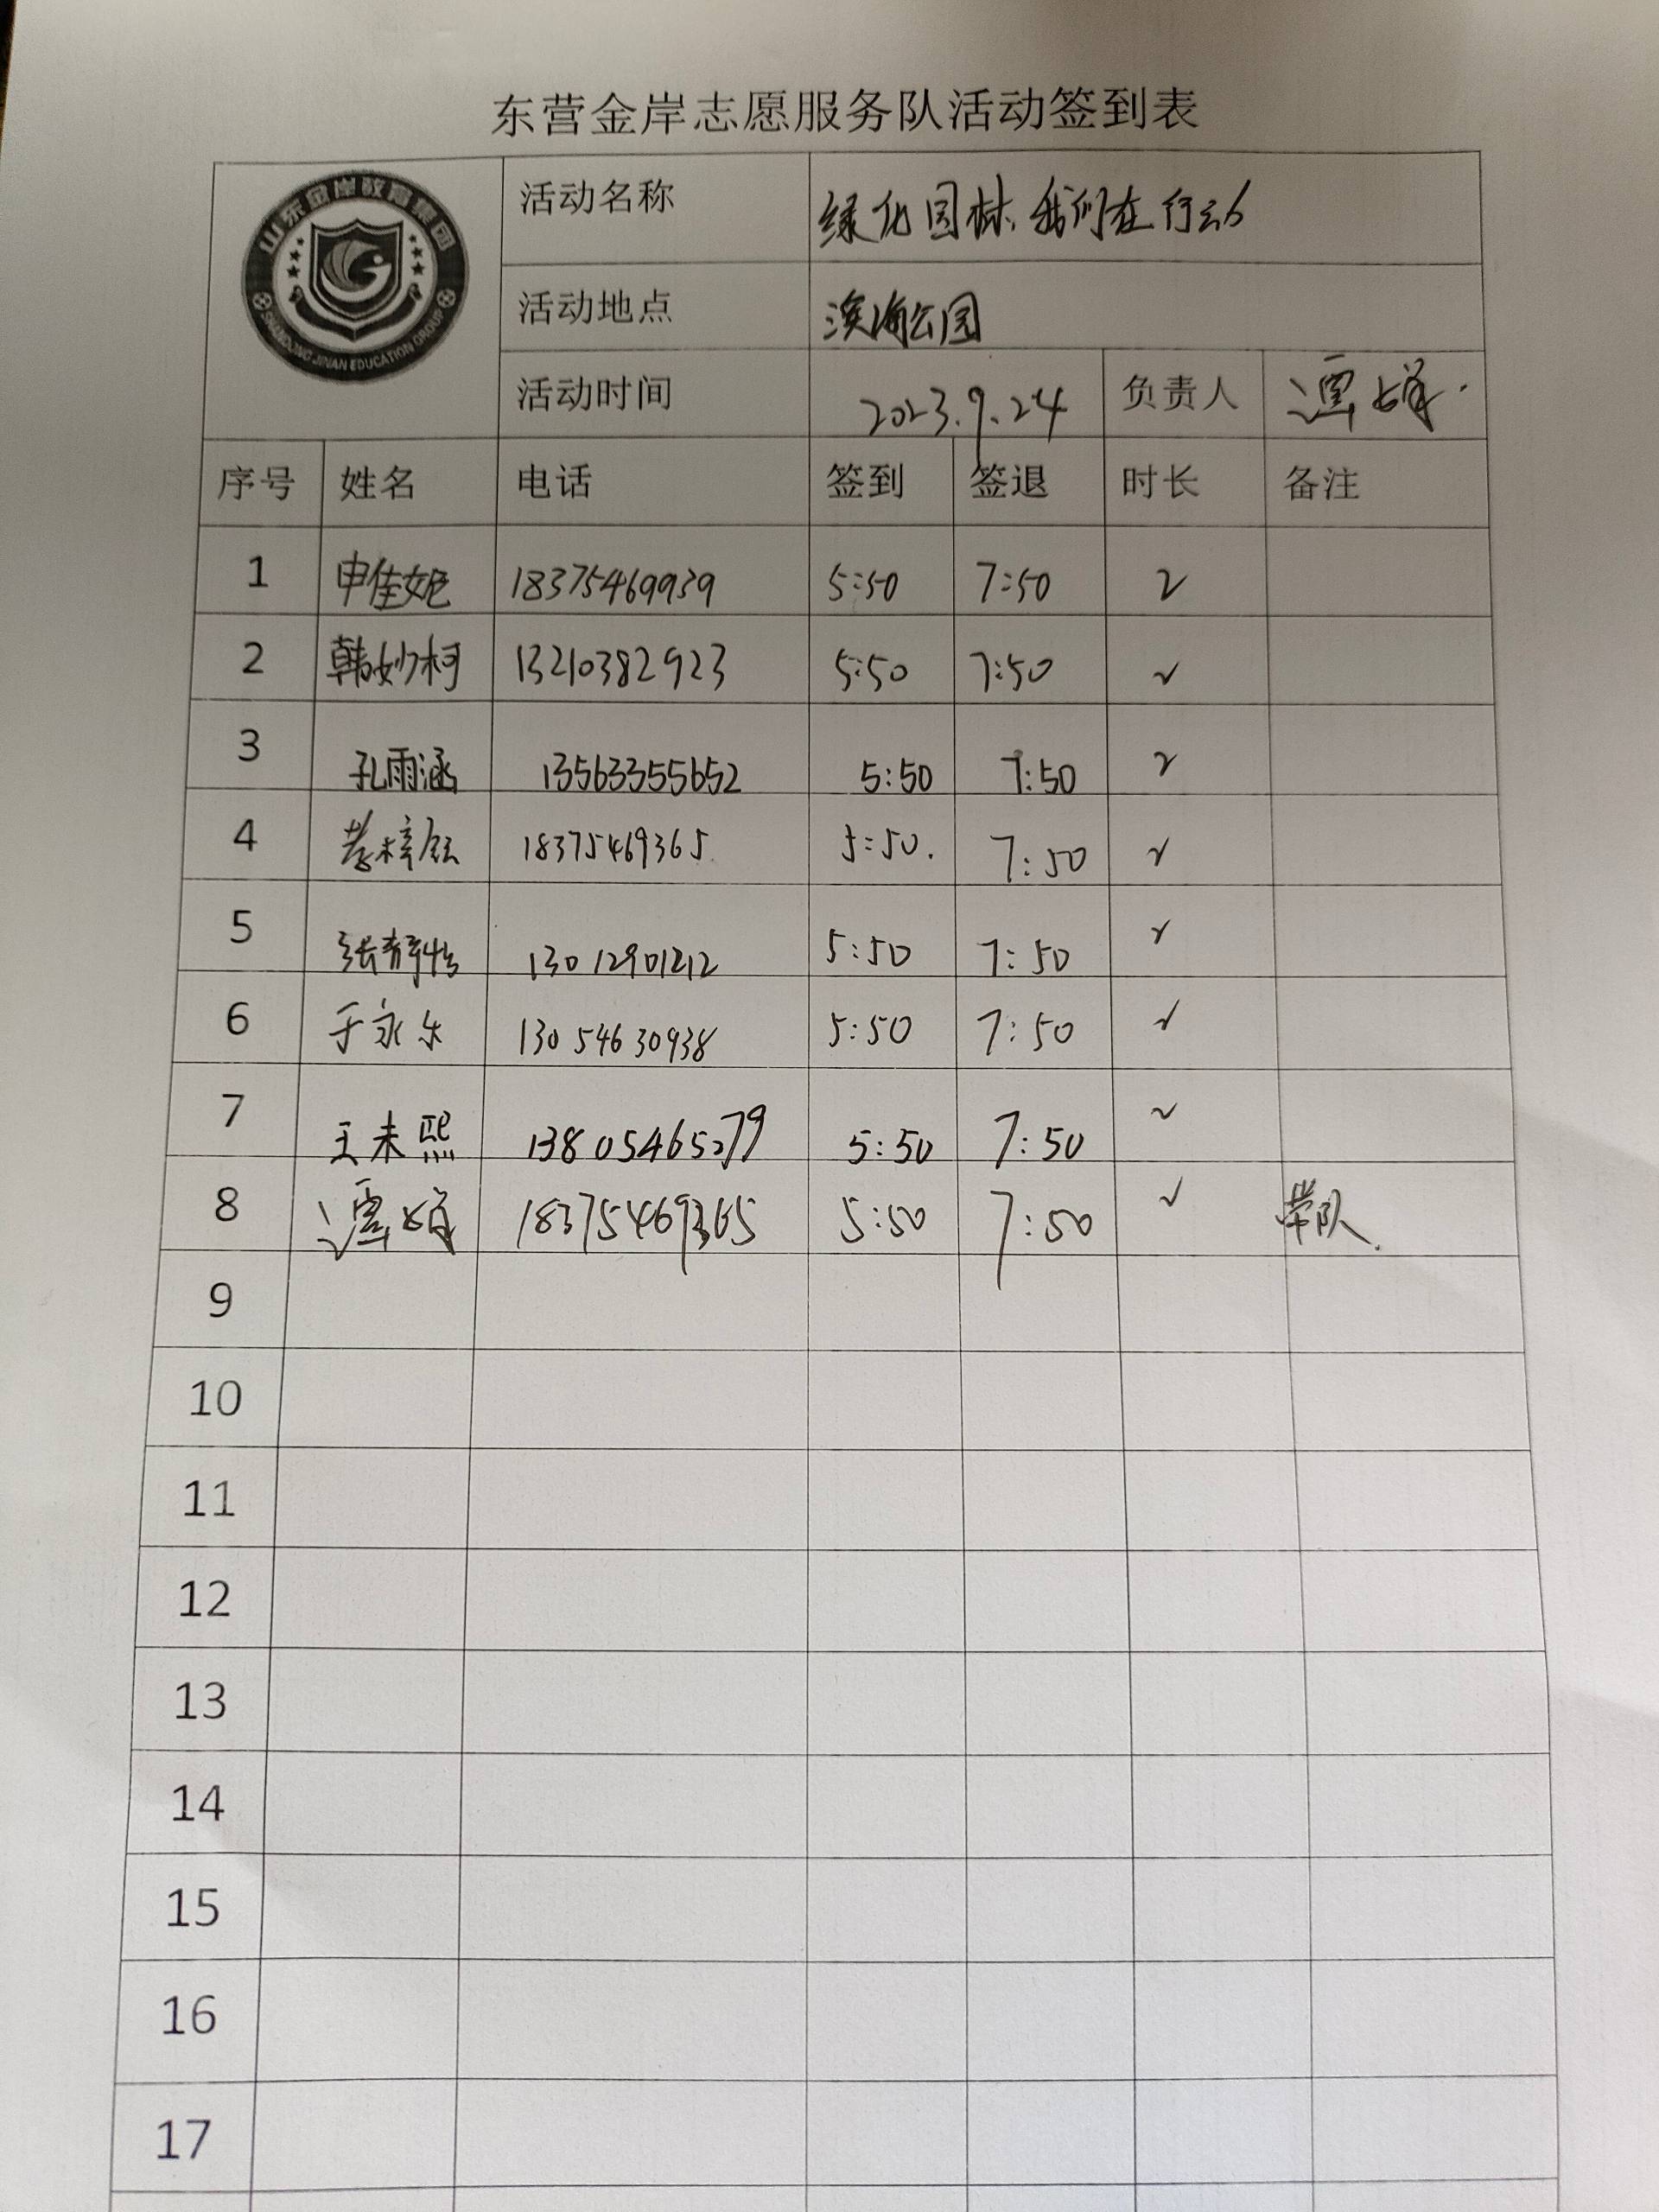 东营金岸志愿服务队活动签到表
山东金岸教育集团
SHANDONG JINAN EDUCATION GROUP
活动名称 绿化园林、我们在行动
活动地点 滨海公园
活动时间 2023.9.24 负责人
序号 姓名 电话 签到 签退 时长 备注
1 申佳妮 18375469939 5:50 7:50 2
2 韩妙柯 13210382923 5:50 7:50 2
3 孔雨涵 13563355652 5:50 7:50 2
4 18375469365 5:50 7:50 2
5 张静怡 13012901212 5:50 7:50 2
6 于永乐 13054630938 5:50 7:50 2
7 王未熙 13805465279 5:50 7:50 2
8 18375469365 5:50 7:50 2 带队.
9
10
11
12
13
14
15
16
17